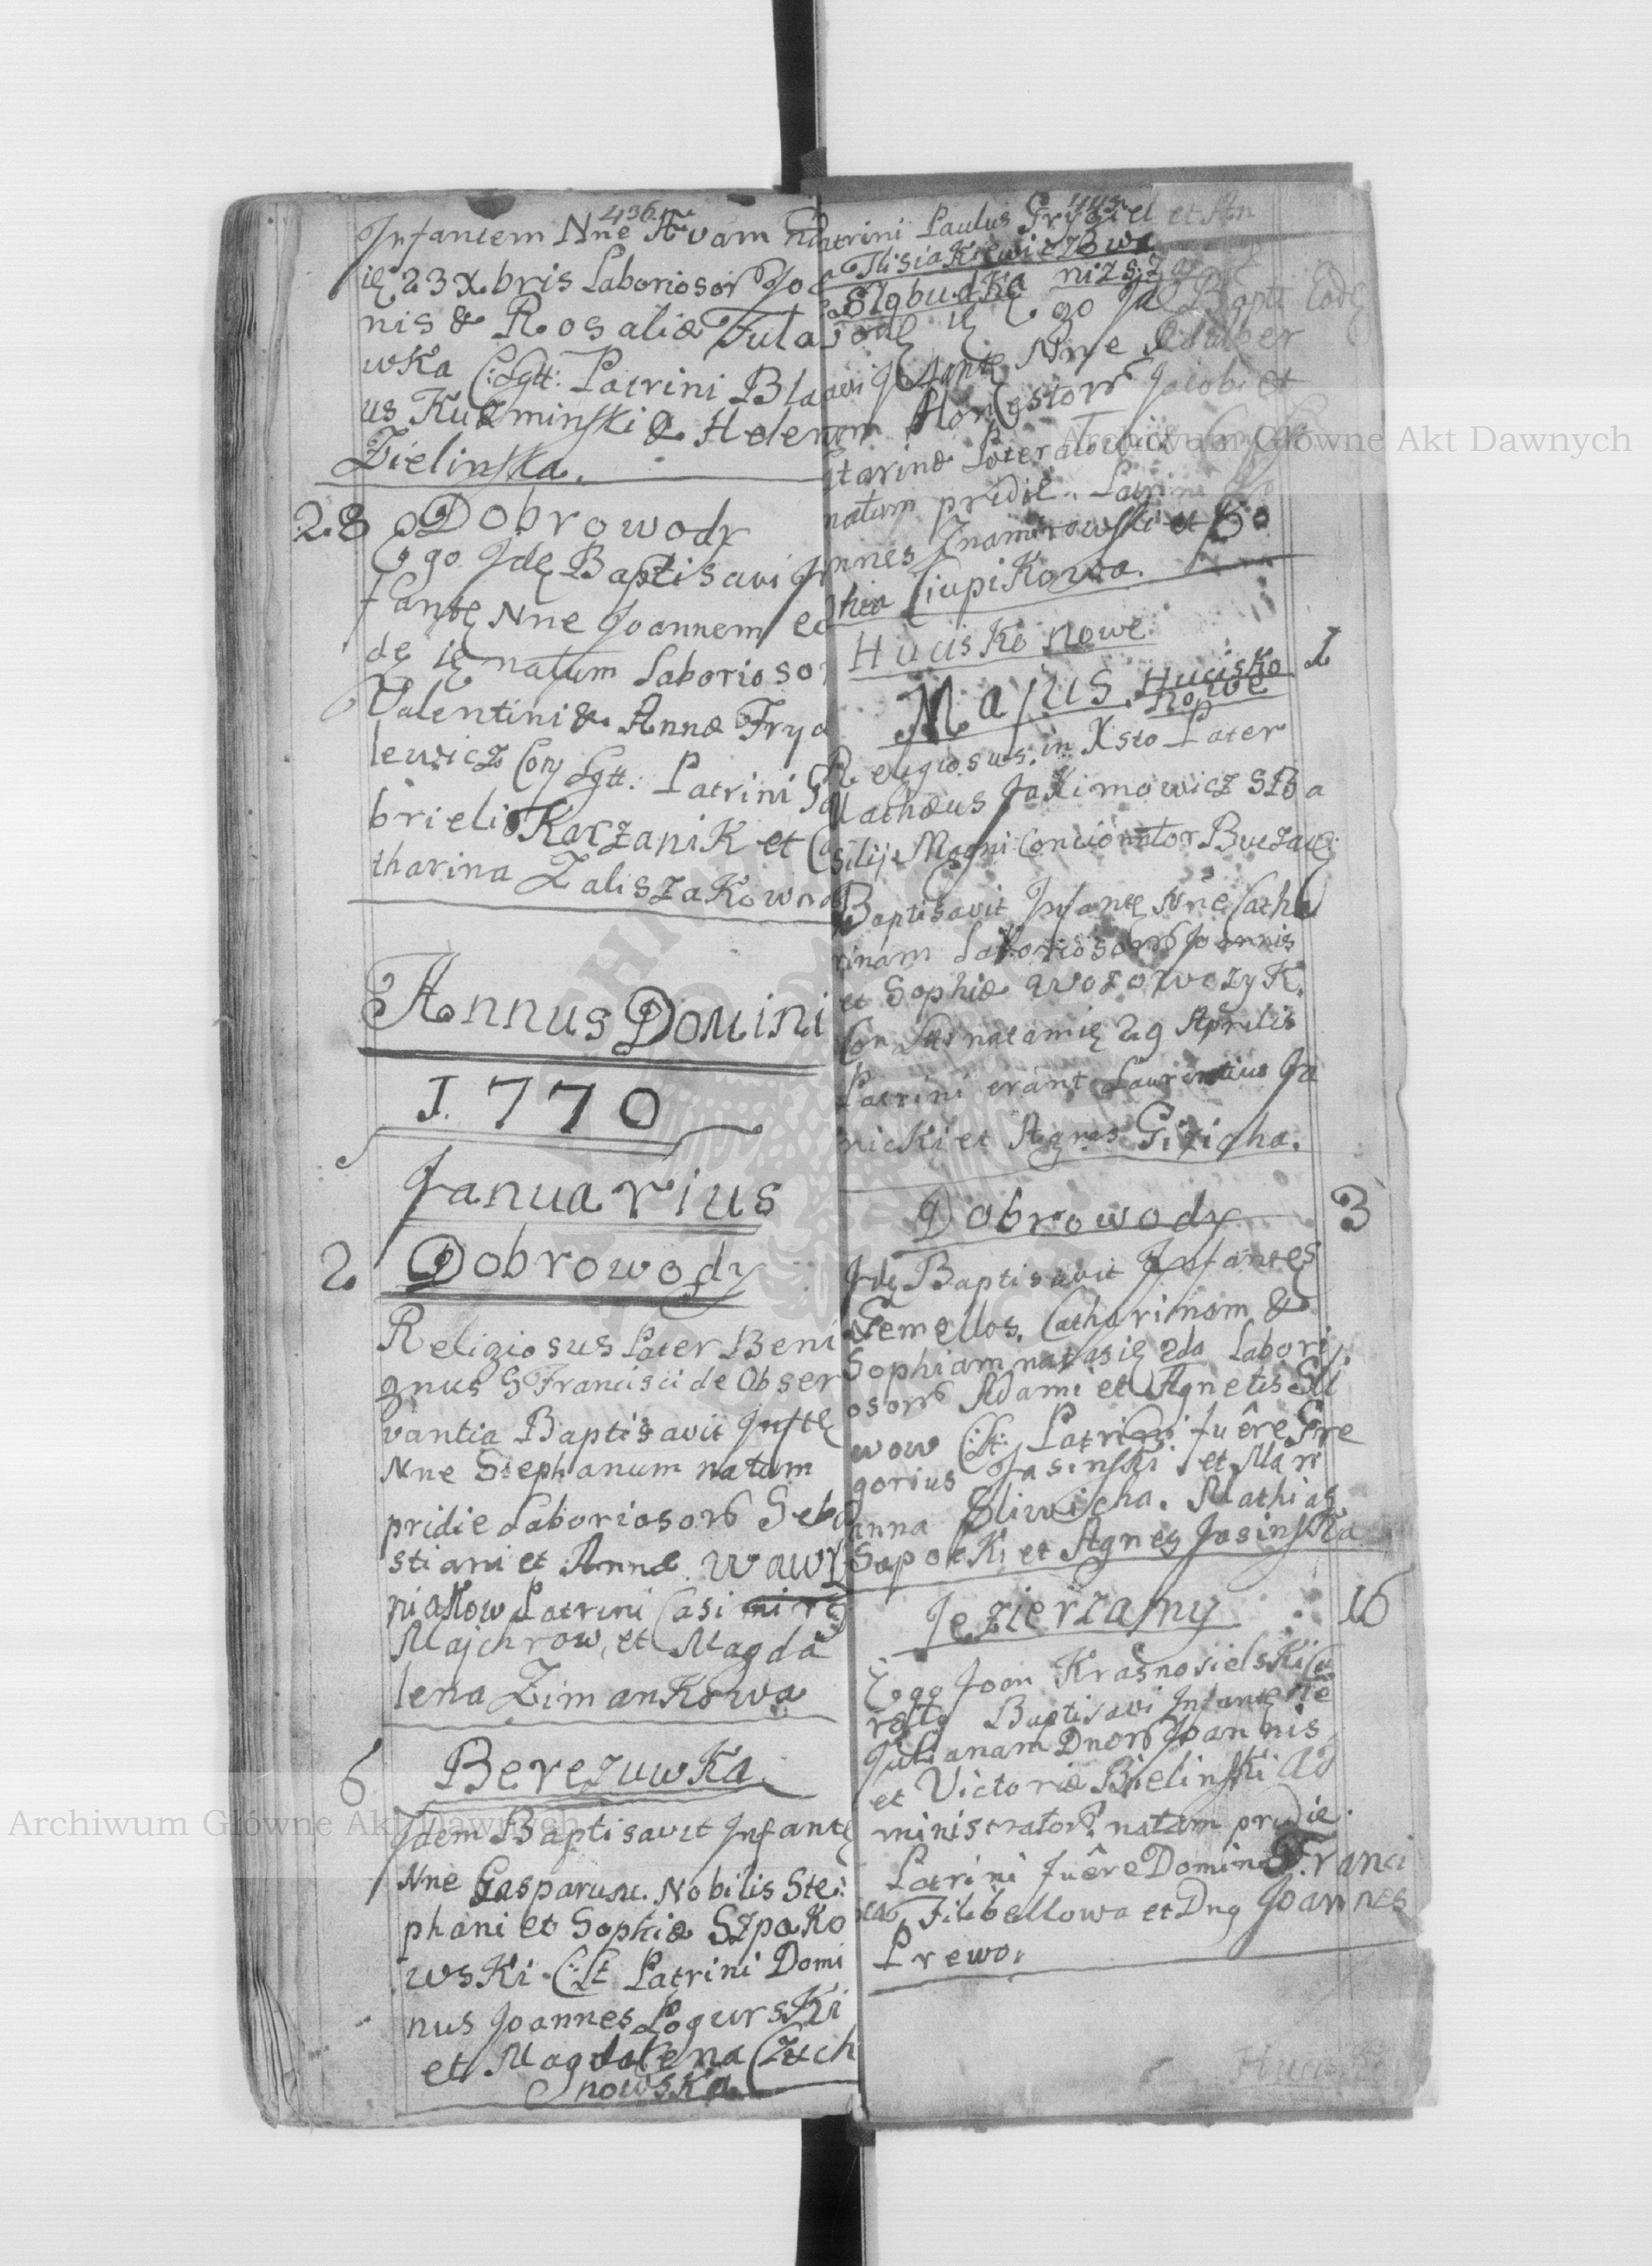 436
Infantem Nne Evam
ię 23 Xbris Laboriosor Joa
nis & Rosaliæ Tula
wKa C: Lgtt: Patrini Blasi
us Kuzminski & Helena
Zielinska.
28 Dobrowody
Ego Idę Baptisavi In
fantę Nne Joannem eo
dę ię natum Laboriosor
Valentini & Annæ Fryd
lewicz Con Lgtt: Patrini Ga
brielis KarzaniK et Ca
tharina ZaliszaKowna
Annus Domini
1770
Januarius
2 Dobrowody
Religiosus Pater Beni
gnus S Francisci de Obser
vantia Baptisavit Inftę
Nne Stephanum natum
pridie Laboriosorū Seba
stiani et Annæ Wawrz
niaKow Patrini Casimirg
Majchrow, et Magda
lena ZimanKowa
6 BerezuwKa
Idem Baptisavit Infantę
Nne Gasparum Nobilis Ste:
phani et Sophiæ SzpaKo
wsKi C: Lt Patrini Domi
nus Joannes PogursKi
et Magdalena Czech
nowsKa
Patrini Paulus Grygiel et An
SlobudKa nizsza
Eodę ię Ego Idę Bapti
savi Infantę Nne Adalber
tum Honestorū Jacobi et
natum pridie. Patrini Jo
annes Znamirowski et So
phia CiupiKowa.
HucisKo nowe
Majus. HucisKo nowe 1
Religiosus in Xsto Pater
Mathæus JaKimowicz S Ba
silij Magni Concionator Buczacę:
Baptisavit Infantę Nne Catha
rinam Laboriosorū Joannis
et Sophiæ
Con Ltt: natam ię 29 Aprilis
Patrini erant Laurentius Ja
nicki et Agnes Gizicha.
Dobrowody 3
Idę Baptisavit Infantes
Gemellos. Catharinam &
Sophiam natas ię 2da Labori
osorū Adami et Agnetis Sli
wow C: Lt: Patrini fuêre Gre
gorius Jasinski et Mari
anna Sliwicha. Mathias
SapotKi et Agnes JasinsKa
Jezierzamny 16
Ego Joan KrasnosielsKi Cu
ratg Baptisavi Infantę Ne
Julianam Dnorū Joannis
et Victoriæ Bielinski Ad
ministratorū. natam pridie.
Patrini fuêre Domina Franci
ca Filibellowa et Dng Joannes
Prewo.
Archiwum Główne Akt Dawnych
Archiwum Główne Akt Dawnych